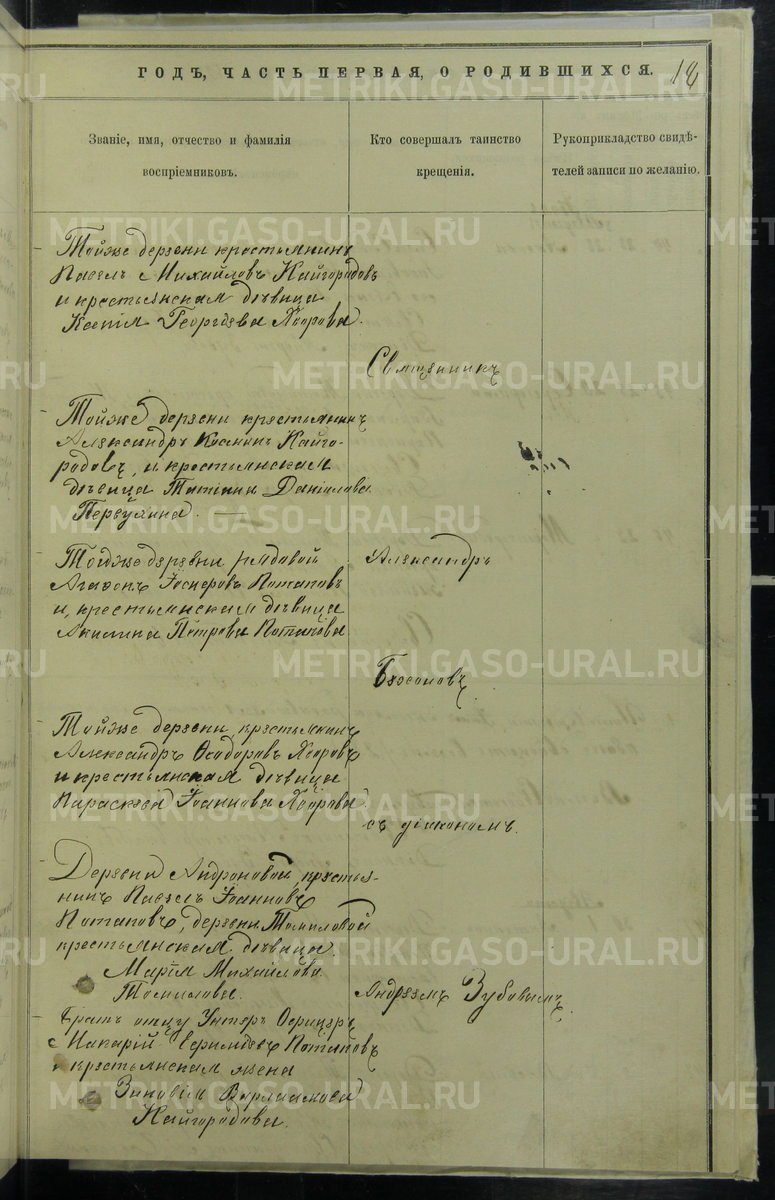 ГОДЪ, ЧАСТЬ ПЕРВАЯ, О РОДИВШИХСЯ.
18
Званіе, имя, отчество и фамилія
воспріемниковъ.
Кто совершалъ таинство
крещенія.
Рукоприкладство свидѣ-
телей записи по желанію.
Тойже деревни крестьянинъ
Павелъ Михайловъ Кайгородовъ
и крестьянская дѣвица
Ксенія Георгіева Хворова.
Священникъ
Тойже деревни крестьянинъ
Александръ Космин Кайго-
родовъ, и крестьянская
дѣвица Татіана Даніилова
Первухина.
Тойже деревни рядовой
Агафонъ Іосифовъ Потаповъ
и крестьянская дѣвица
Акилина Петрова Потапова
Александръ
Бессоновъ
Тойже деревни, крестьянинъ
Александръ Ѳеодоровъ Хворовъ
и крестьянская дѣвица
Параскева Іоаннова Хворова.
съ діакономъ.
Деревни Андроновой, крестья-
нинъ Павелъ Іоанновъ
Потаповъ, деревни Томиловой
крестьянская дѣвица
Марія Михайлова
Томилова.
Андреемъ Зубовымъ.
Братъ отцу Унтеръ Офицеръ
Макарій Ефимовъ Потаповъ
и крестьянская жена
Зиновія Варлаамова
Кайгородова.
METRIKI.GASO-URAL.RU